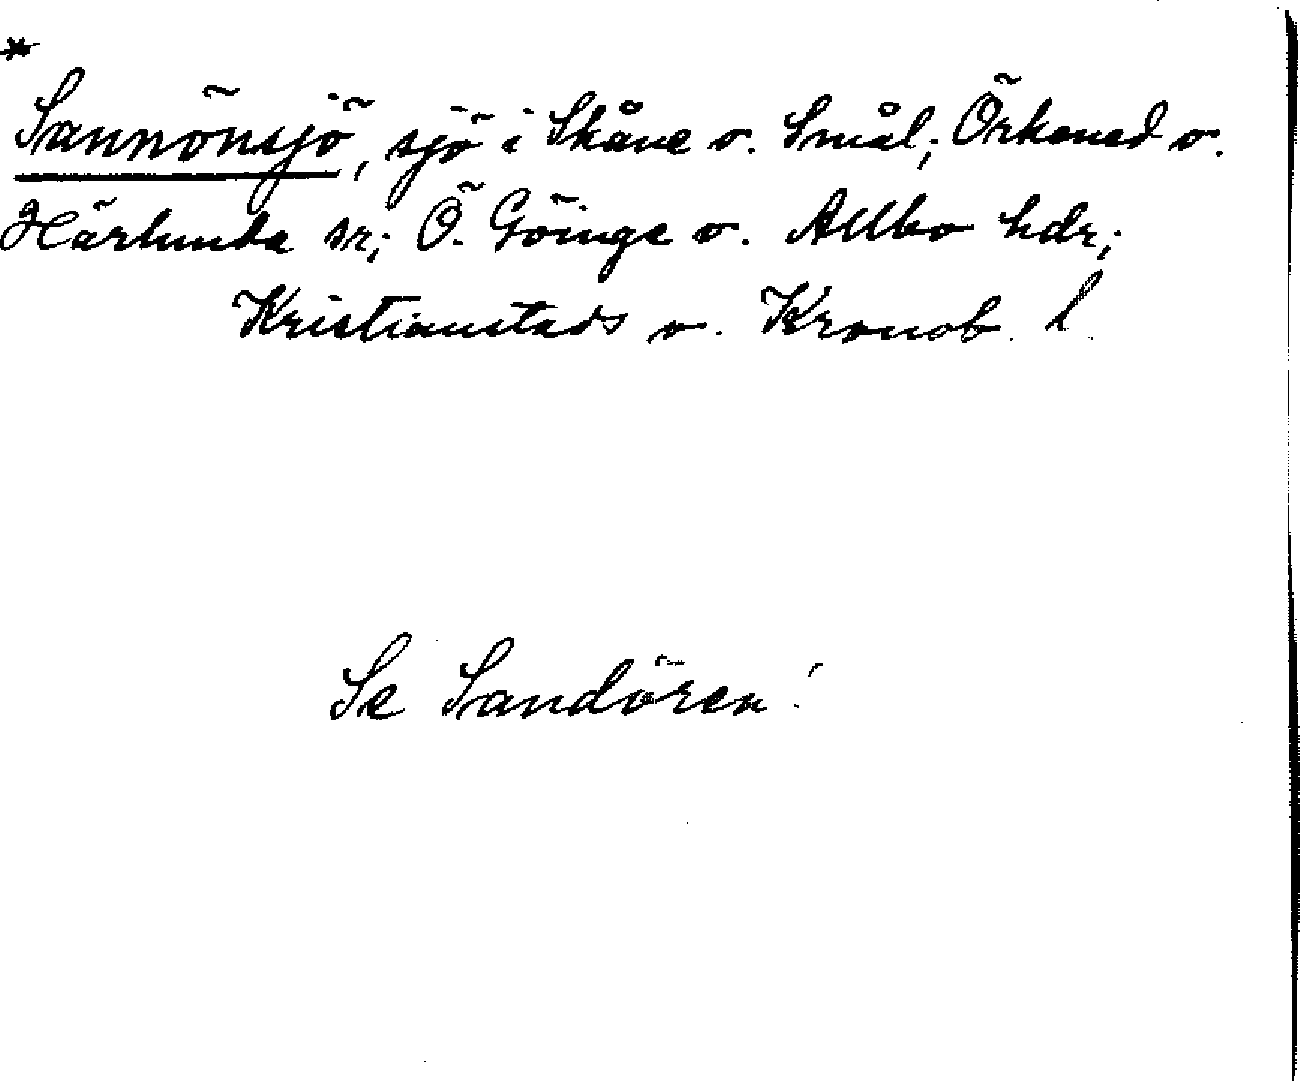 *
Sannönsjö, sjö i Skåne o. Smål; Örkened o.
Härlunda sr; Ö. Göinge o. Allbo hdr;
Kristianstads o. Kronob. l.
Se Sandören!